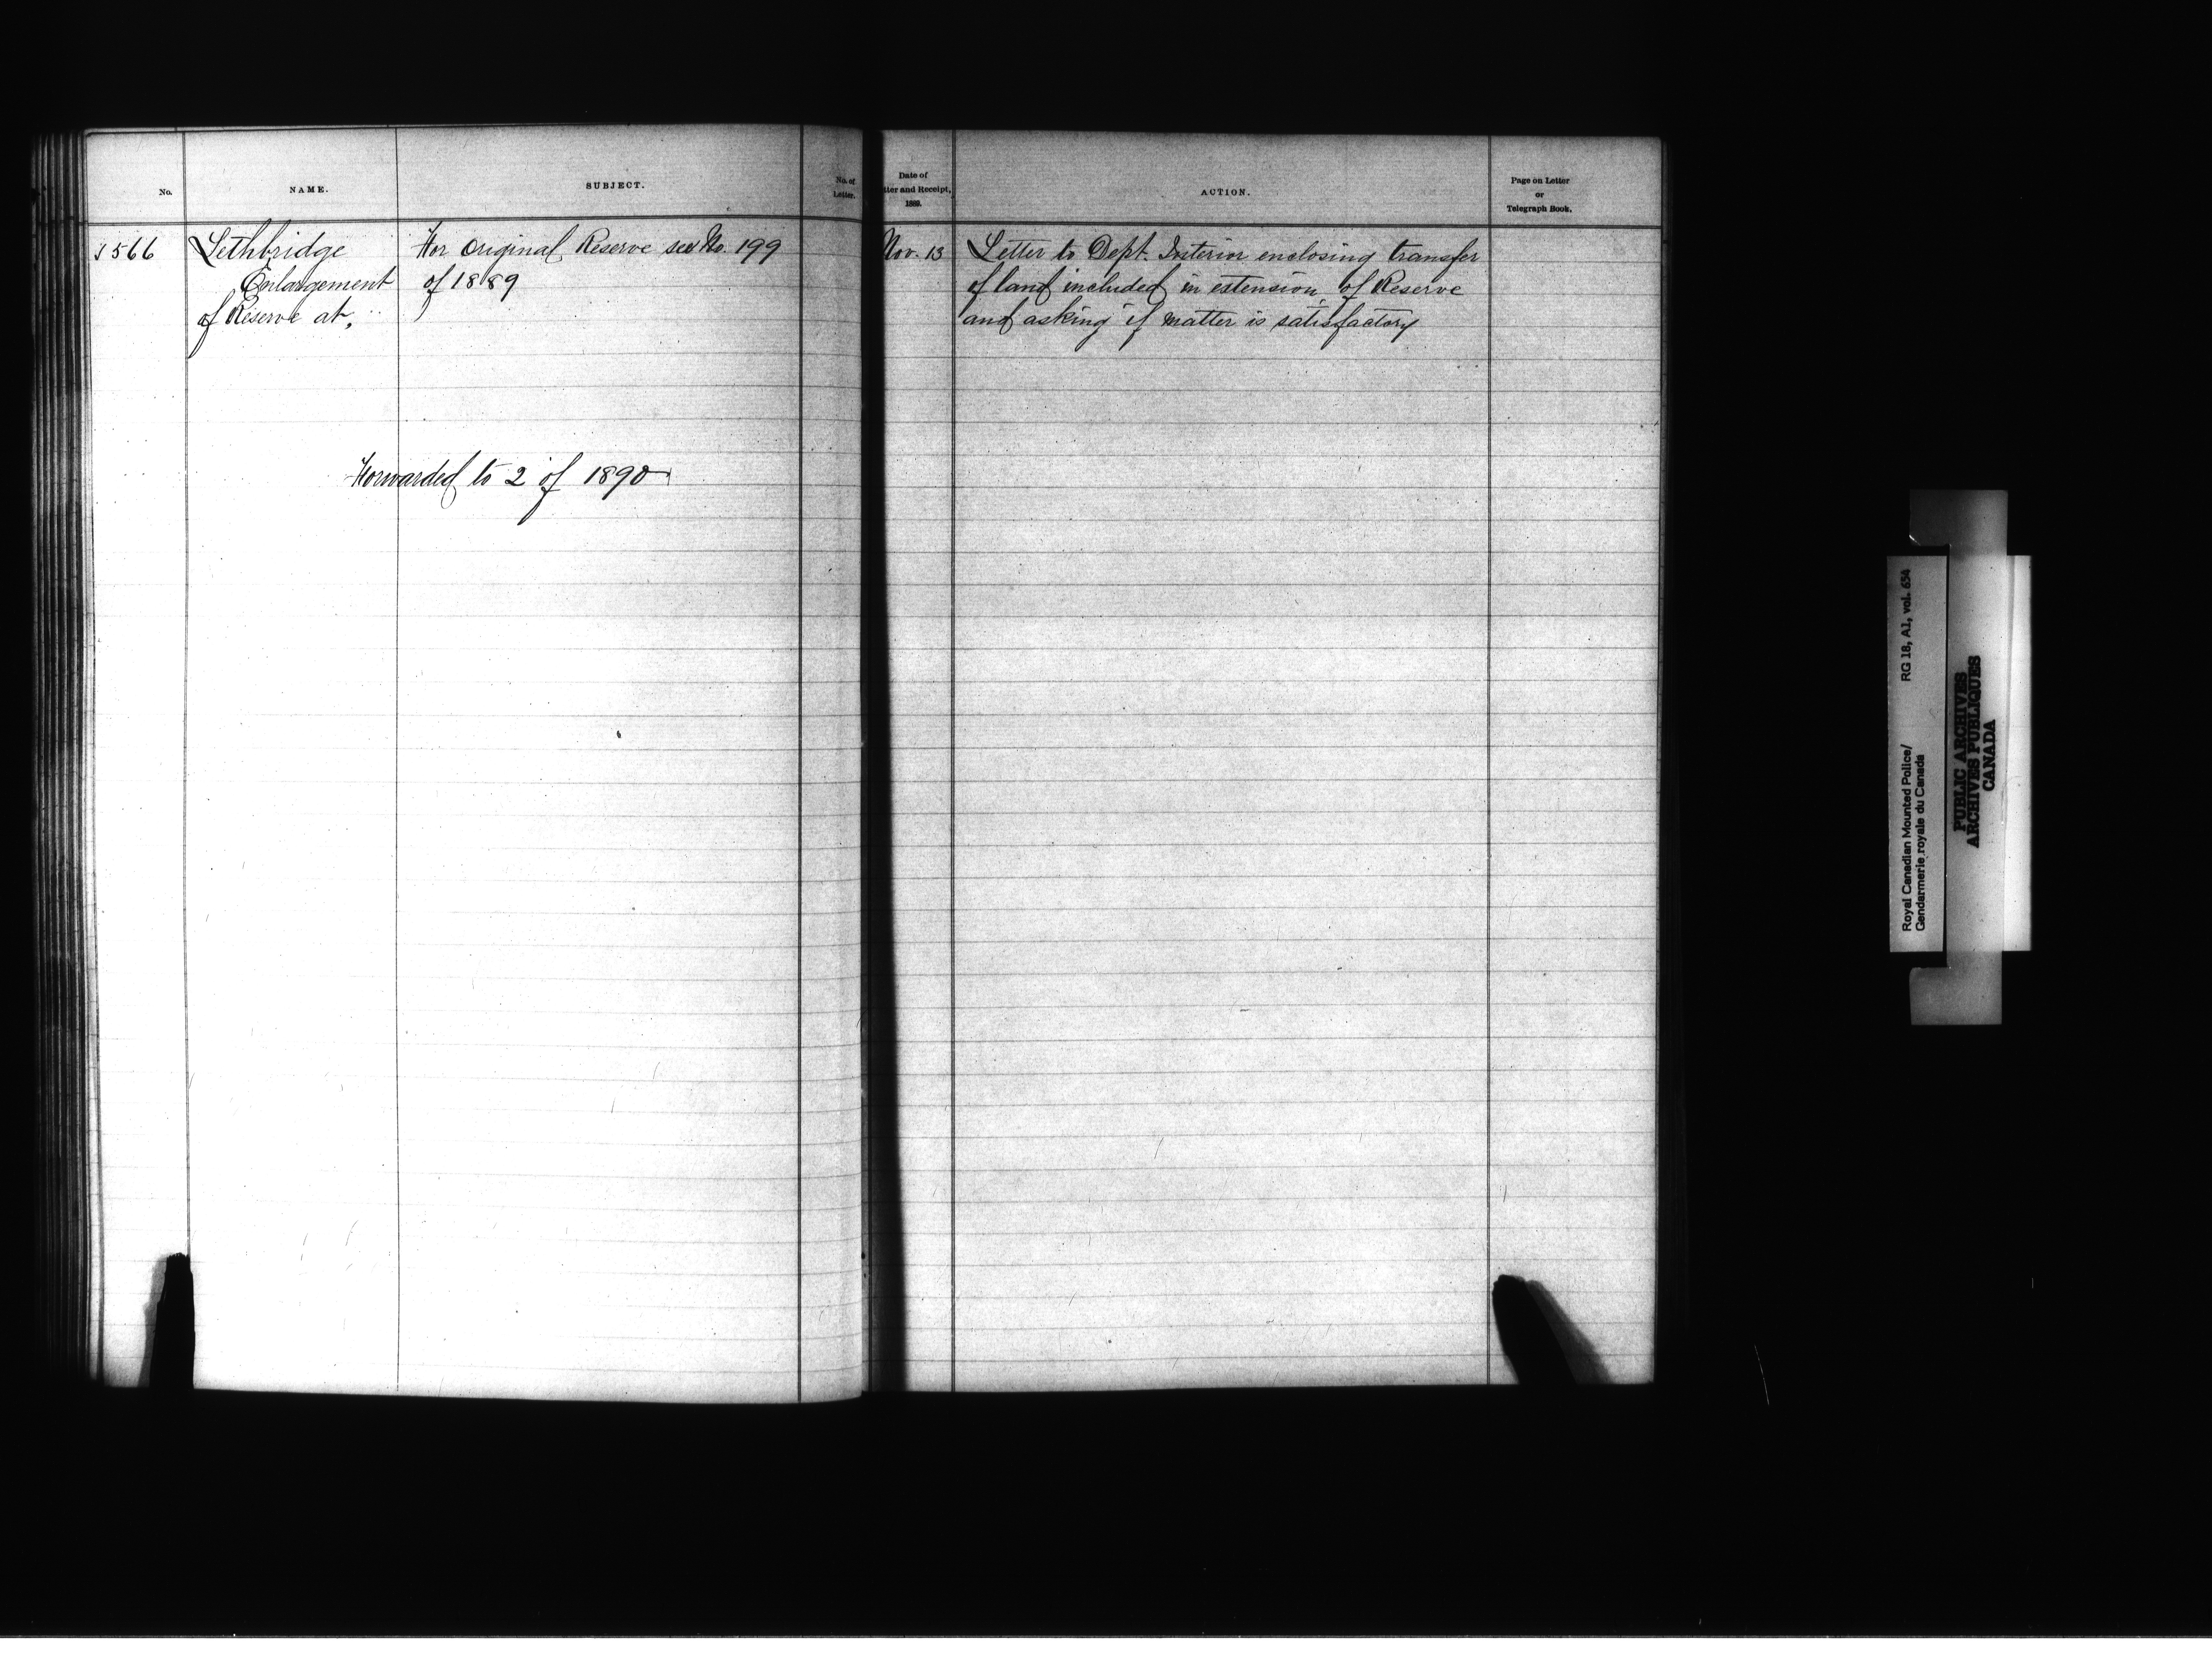 No.
NAME.
SUBJECT.
No. of
Letter.
Date of
tter and Receipt,
1889.
ACTION.
Page on Letter
or
Telegraph Book.
1566
Lethbridge
Enlargement
of Reserve at.
For original Reserve see No. 199
of 1889
Nov. 13
Letter to Dept. Interior enclosing transfer
of land included in extension of Reserve
and asking if matter is satisfactory
Forwarded to 2 of 1890
Royal Canadian Mounted Police/ RG 18, A1, vol. 654
Gendarmerie royale du Canada
PUBLIC ARCHIVES
ARCHIVES PUBLIQUES
CANADA